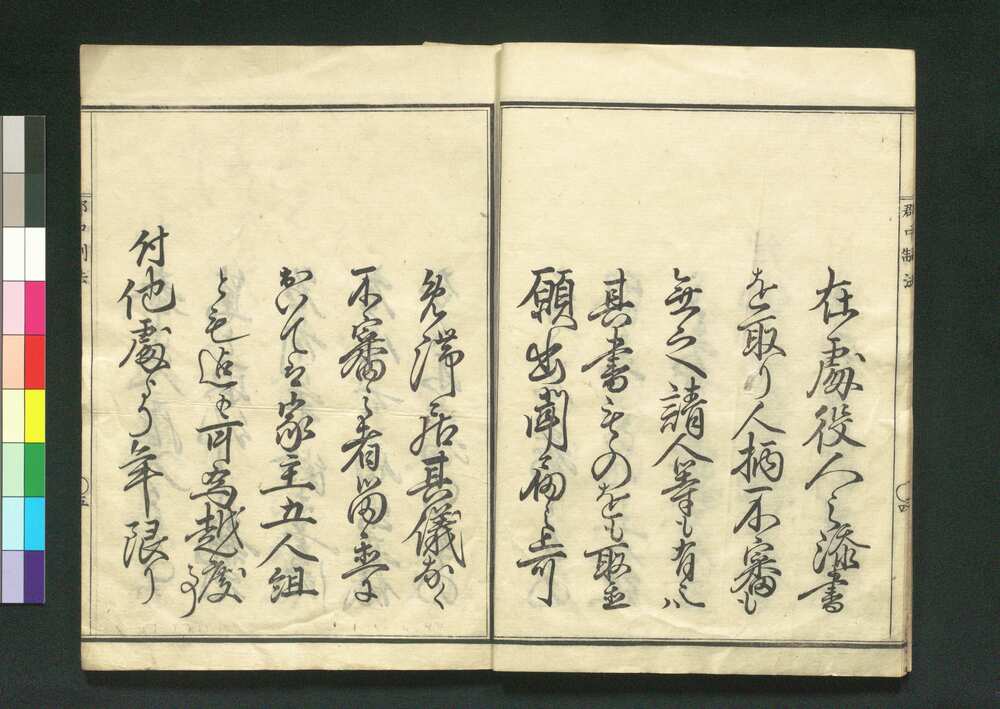 郡中制法
在處役人之添書
を取り人柄不審も
無之請人等も有之ハ
其書ものをも取置
願出聞届之上可
四
免滞居其儀なく
不審之者留置に
おいてハ家主五人組
とも迄も可為越度事
付他處より年限り
郡中制法
五